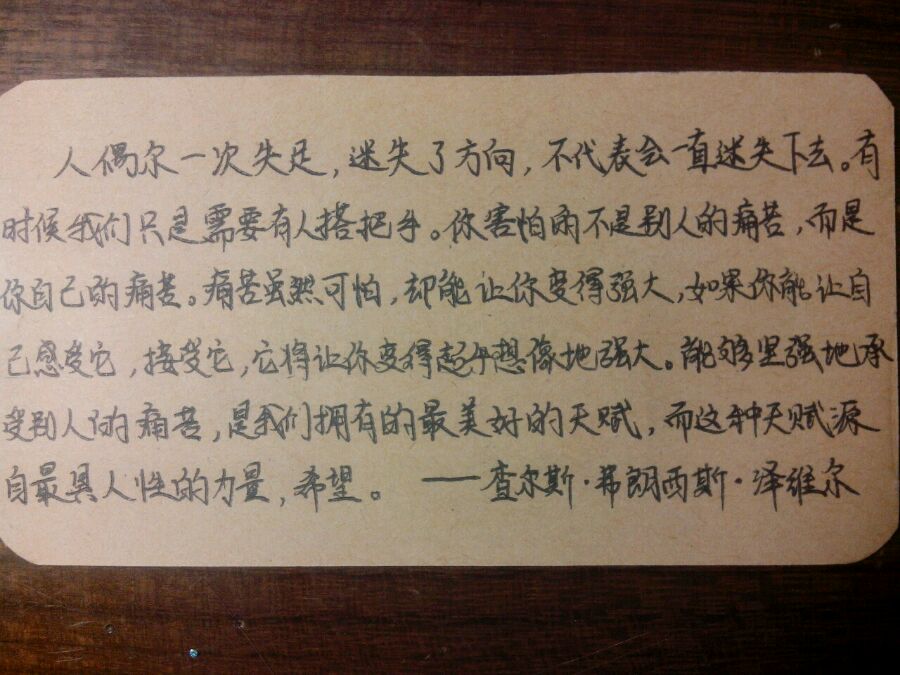 人偶尔一次失足，迷失了方向，不代表会一直迷失下去。有
时候我们只是需要有人搭把手。你害怕的不是别人的痛苦，而是
你自己的痛苦。痛苦虽然可怕，却能让你变得强大，如果你能让自
己感受它，接受它，它将让你变得超乎想像地强大。能够坚强地承
受别人的痛苦，是我们拥有的最美好的天赋，而这种天赋源
自最具人性的力量，希望。 ——查尔斯·弗朗西斯·泽维尔